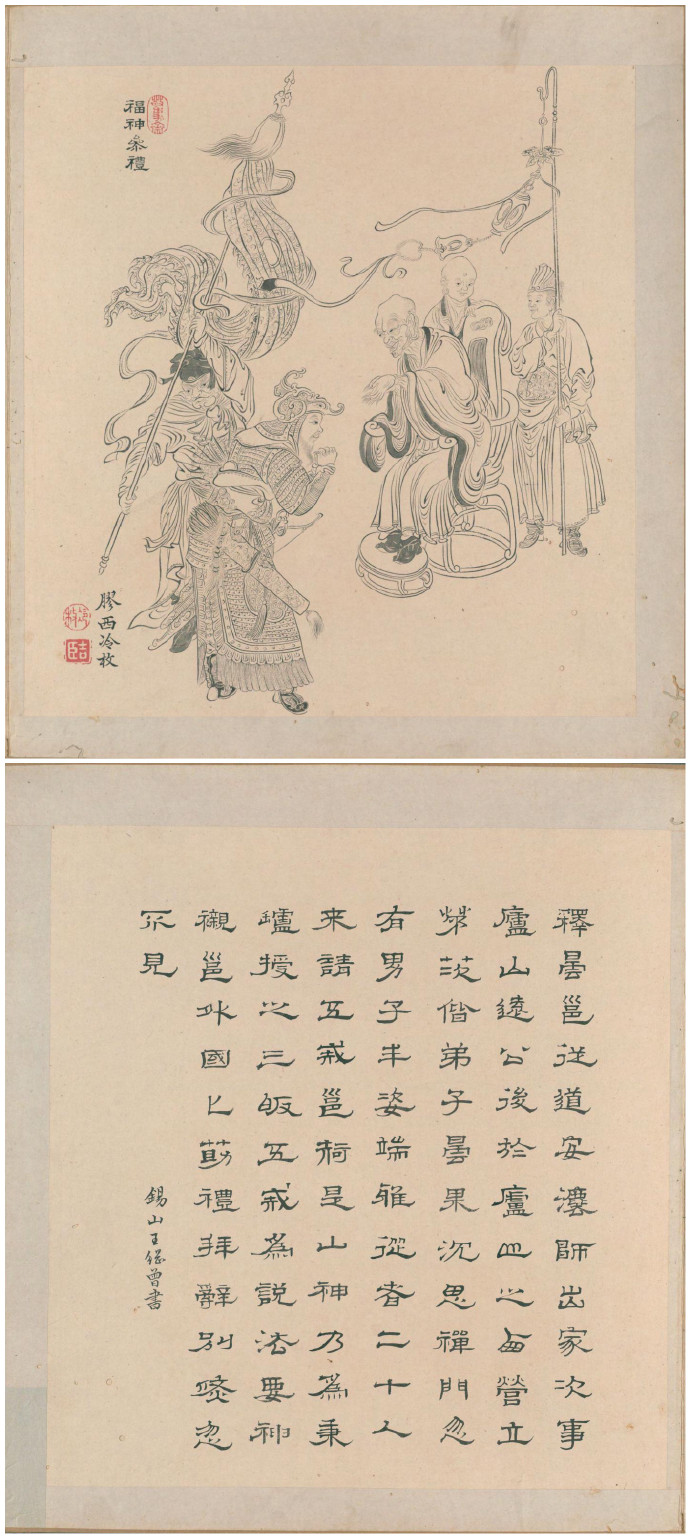 福神叅禮
膠西冷枚
吉臣
釋曇邕從道安灋師出家次事
廬山遠公後於廬山之西營立
茅茨偕弟子曇果沉思禪門忽
有男子丰姿端雅從者二十人
来請五戒邕是山神乃為秉
爐授之三皈五戒為説法要神
襯邕外國匕筯禮拜辭別倐忽
不見
錫山王繩曾書